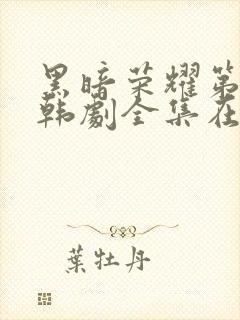 黑暗荣耀第
韩劇全集在
葉牡丹